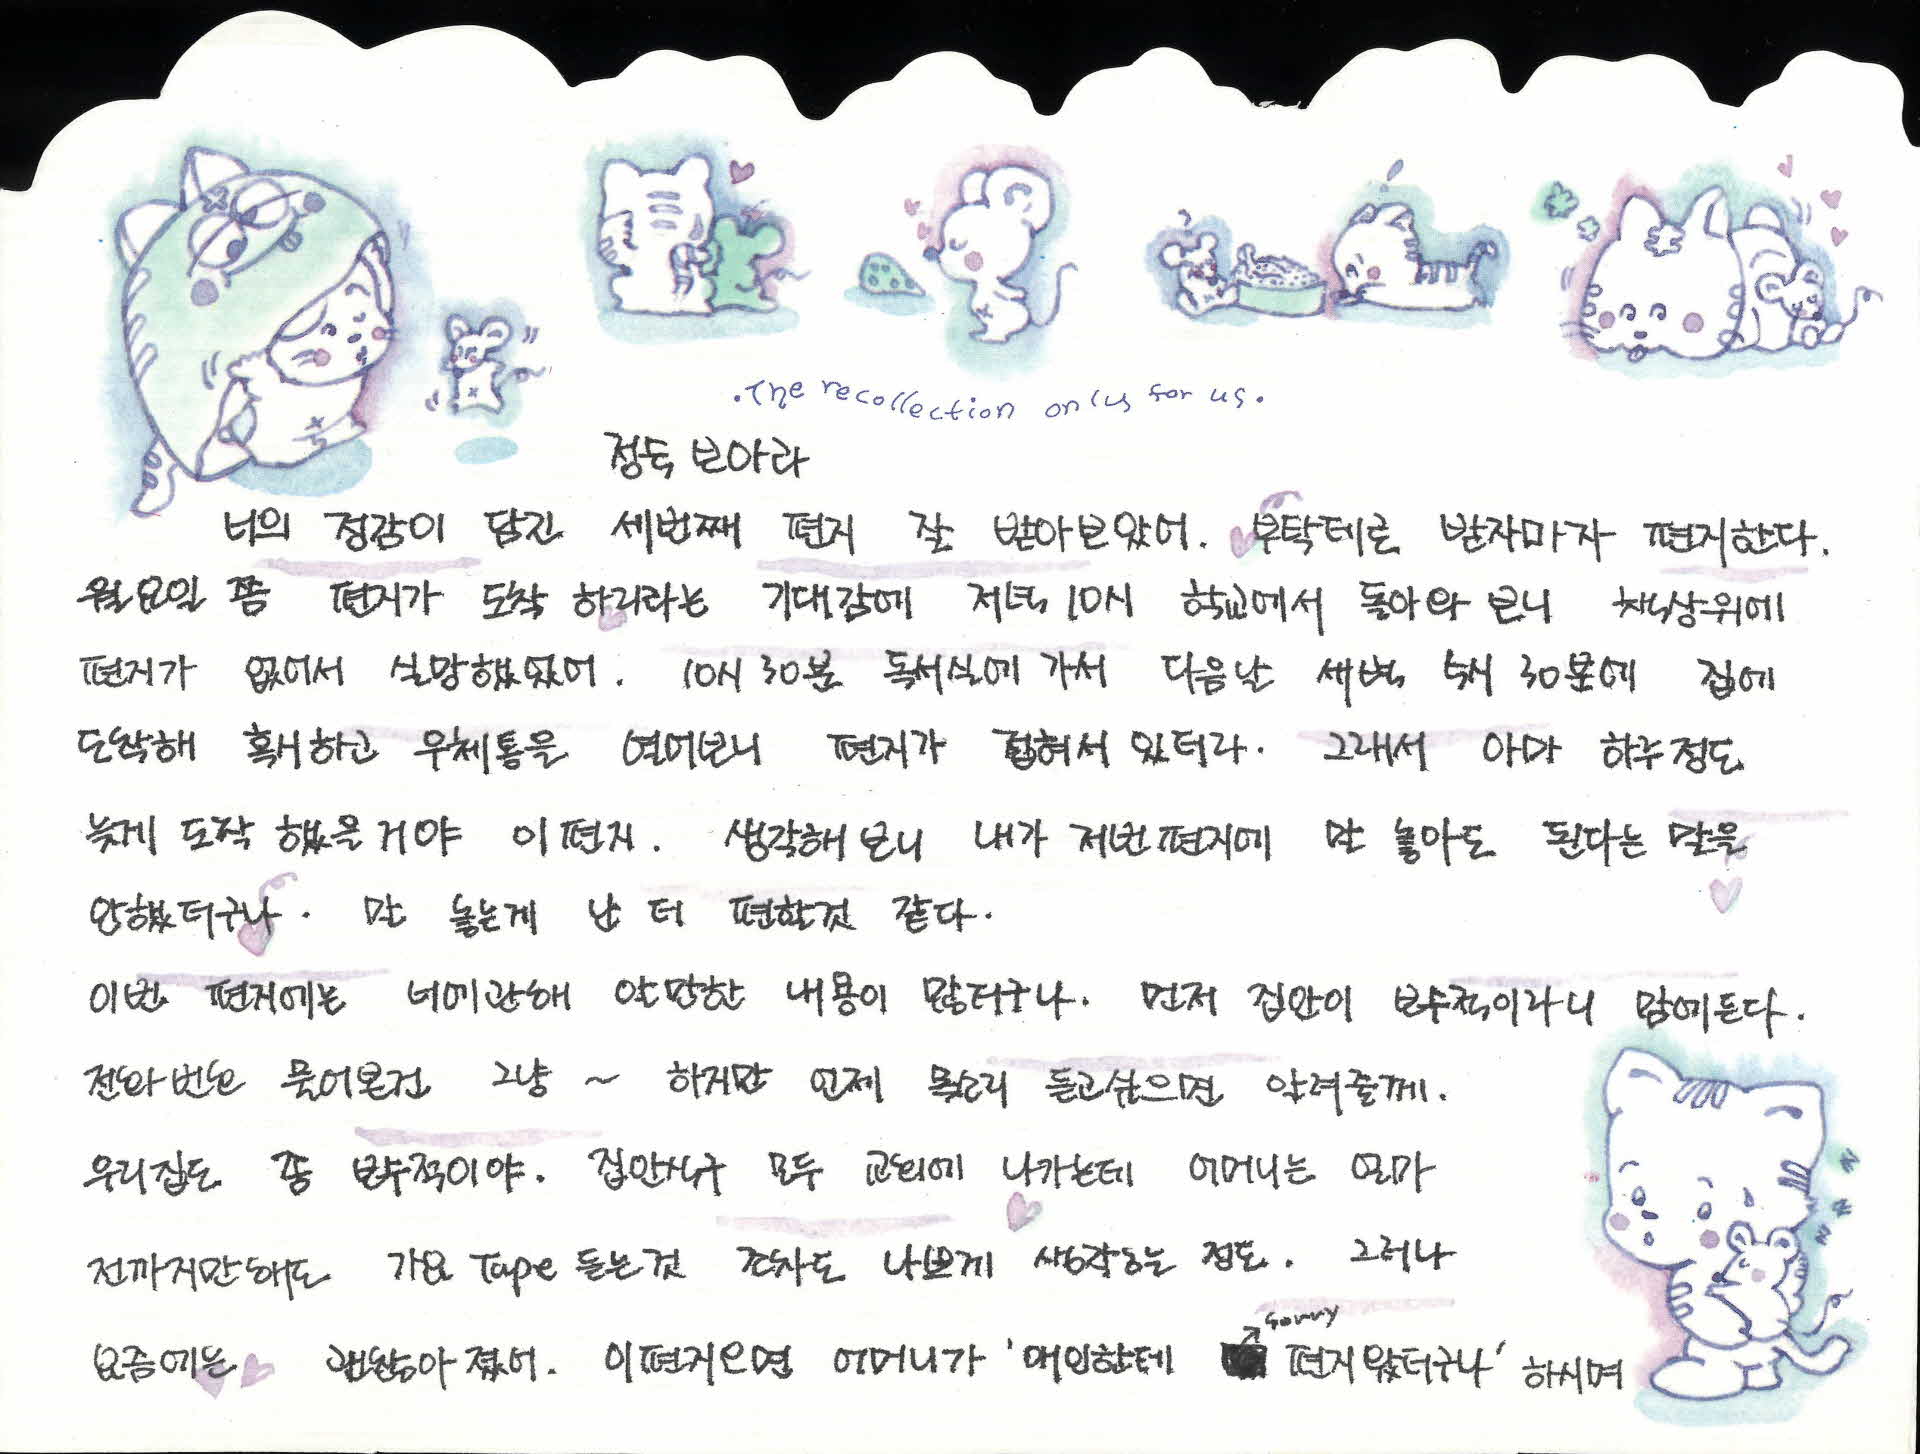 .The recollection only for us.
정득 보아라
너의 정감이 담긴 세번째 편지 잘 받아보았어. 부탁데로 받자마자 편지한다.
월요일 쯤 편지가 도착 하리라는 기대감에 저녁 10시 학교에서 돌아와 보니 책상위에
편지가 없어서 실망했었어. 10시 30분 독서실에 가서 다음날 새벽 5시 30분에 집에
도착해 혹시하고 우체통을 열어보니 편지가 접혀서 있터라. 그래서 아마 하루정도
늦게 도착 했을거야 이 편지. 생각해 보니 내가 저번편지에 말 놓아도 된다는 말을
안했터구나. 말 놓는게 난 더 편할것 같다.
이번 편지에는 너에관해 알만한 내용이 많터구나. 먼저 집안이 보수적이라니 맘에든다.
전화번호 물어본건 그냥 ~ 하지만 언제 목소리 듣고싶으면 알려줄께.
우리집도 좀 보수적이야. 집안식구 모두 교회에 나가는데 어머니는 얼마
전까지만해도 가요 Tape 듣는것 조차도 나쁘게 생각하는 정도. 그러나
요즘에는 괜찮아 졌어. 이편지오면 어머니가 '애인한테 sorry 편지왔터구나' 하시며